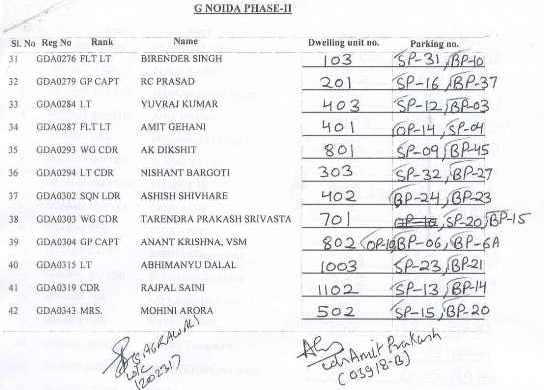 G NOIDA PHASE-II
Sl. No Reg No Rank Name Dwelling unit no. Parking no.
31 GDA0276 FLT LT BIRENDER SINGH 103 SP-31, BP-10
32 GDA0279 GP CAPT RC PRASAD 201 SP-16, BP-37
33 GDA0284 LT YUVRAJ KUMAR 403 SP-12, BP-03
34 GDA0287 FLT LT AMIT GEHANI 401 OP-14, SP-04
35 GDA0293 WG CDR AK DIKSHIT 801 SP-09, BP-45
36 GDA0294 LT CDR NISHANT BARGOTI 303 SP-32, BP-27
37 GDA0302 SQN LDR ASHISH SHIVHARE 402 BP-24, BP-23
38 GDA0303 WG CDR TARENDRA PRAKASH SRIVASTA 701 SP-20, BP-15
39 GDA0304 GP CAPT ANANT KRISHNA, VSM 802 OP-19, BP-06, BP-6A
40 GDA0315 LT ABHIMANYU DALAL 1003 SP-23, BP-21
41 GDA0319 CDR RAJPAL SAINI 1102 SP-13, BP-14
42 GDA0343 MRS. MOHINI ARORA 502 SP-15, BP-20
AGRAWAL
Cdr Amit Prakash
(03918-B)